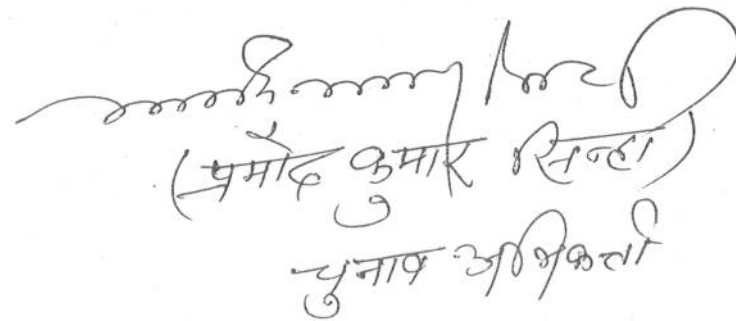 (प्रमोद कुमार सिन्हा)
चुनाव अभिकर्ता